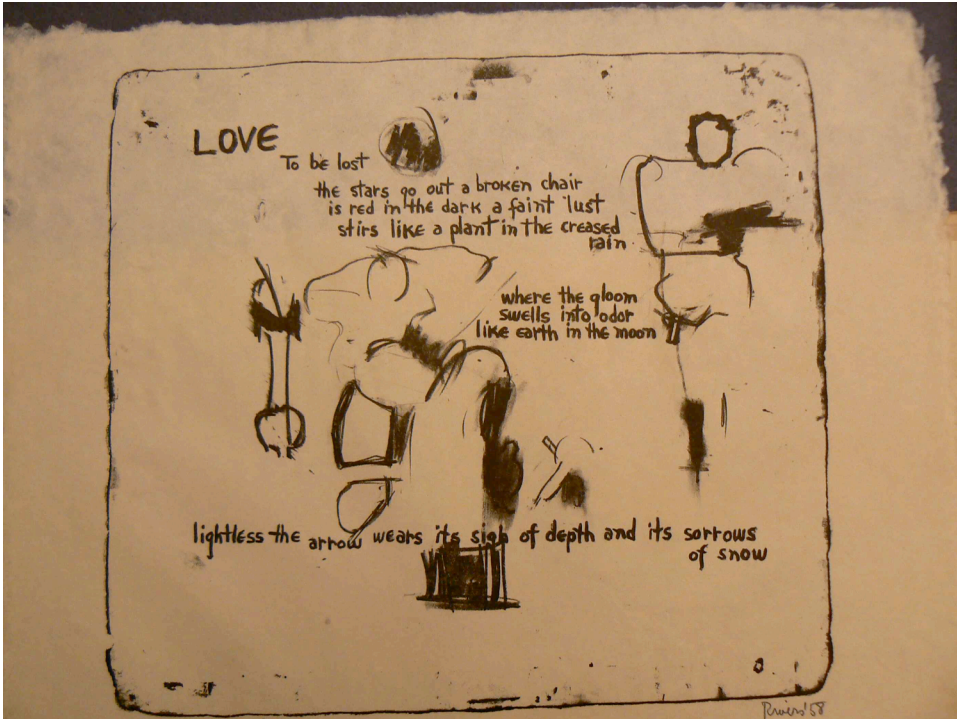 LOVE
To be lost
the stars go out a broken chair
is red in the dark a faint lust
stirs like a plant in the creased
rain
where the gloom
swells into odor
like earth in the moon
lightless the arrow wears its sigh of depth and its sorrows
of snow
Rivers '58